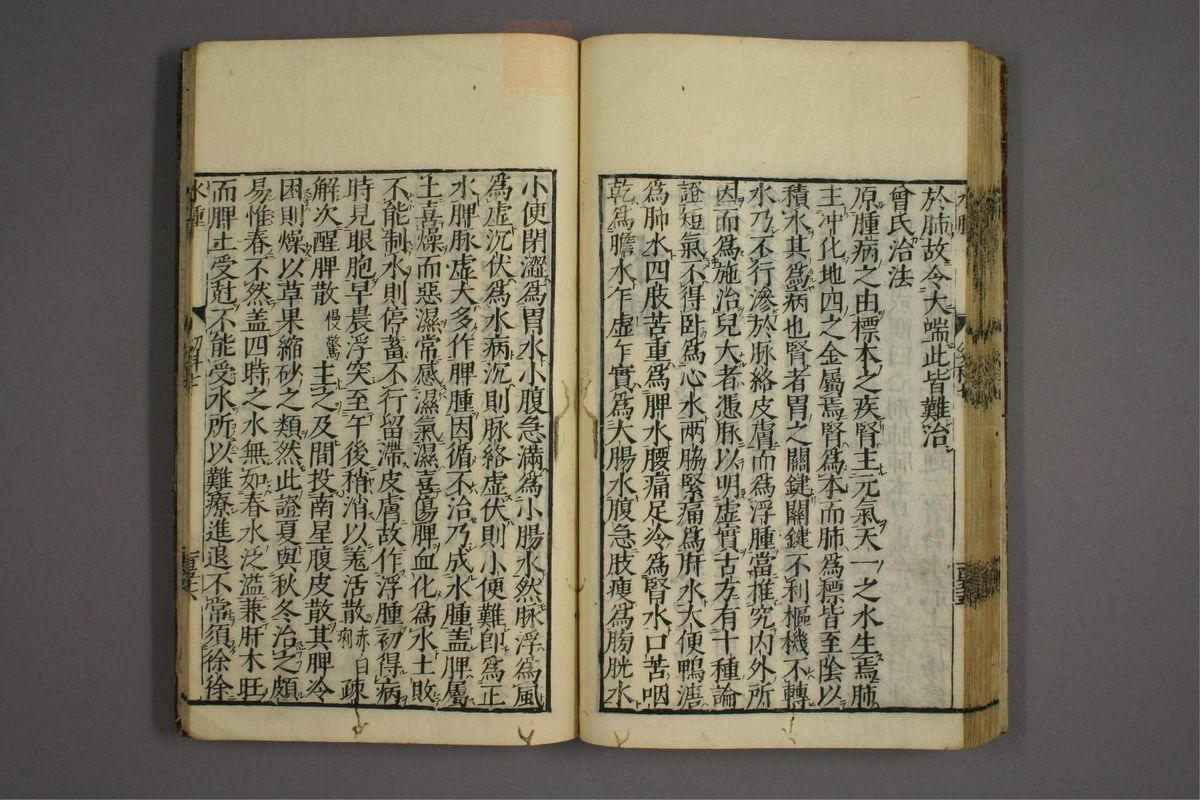 於肺故令大端此皆難治
曾氏治法
原腫病之由標本之疾腎主元氣天一之水生焉肺
主冲化地四之金屬焉腎爲本而肺爲標皆至陰以
積水其爲病也腎者胃之關鍵關鍵不利樞機不轉
水乃不行滲於脉絡皮膚而爲浮腫當推究内外所
因而爲施治兒大者憑脉以明虚實古方有十種論
證短氣不得卧爲心水两脇緊痛爲肝水大便鴨溏
爲肺水四肢苦重爲脾水腰痛足冷爲腎水口苦咽
乾爲膽水乍虚乍實爲大腸水腹急肢瘦爲膀胱水
小便閉澀爲胃水小腹急滿爲小腸水然脉浮爲風
爲虚沉伏爲水病沉則脉絡虚伏則小便難即爲正
水脾脉虚大多作脾腫因循不治乃成水腫盖脾屬
土喜燥而惡濕常感濕氣濕喜傷脾血化爲水土敗
不能制水則停蓄不行留滯皮膚故作浮腫初得病
時見眼胞早晨浮突至午後稍消以羗活散赤白痢疎
解次醒脾散慢驚主之及間投南星腹皮散其脾冷
困則燥以草果縮砂之類然此證夏與秋冬治之頗
易惟春不然盖四時之水無如春水泛溢兼肝木旺
而脾土受尅不能受水所以難療進退不常須徐徐
水腫